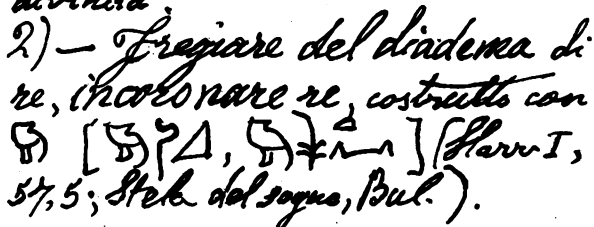 divinità.
2) — Fregiare del diadema di
re, incoronare re, costrutto con
𓅓 [ , ] (Harr I,
57,5; Stela del sogno, Bul.).